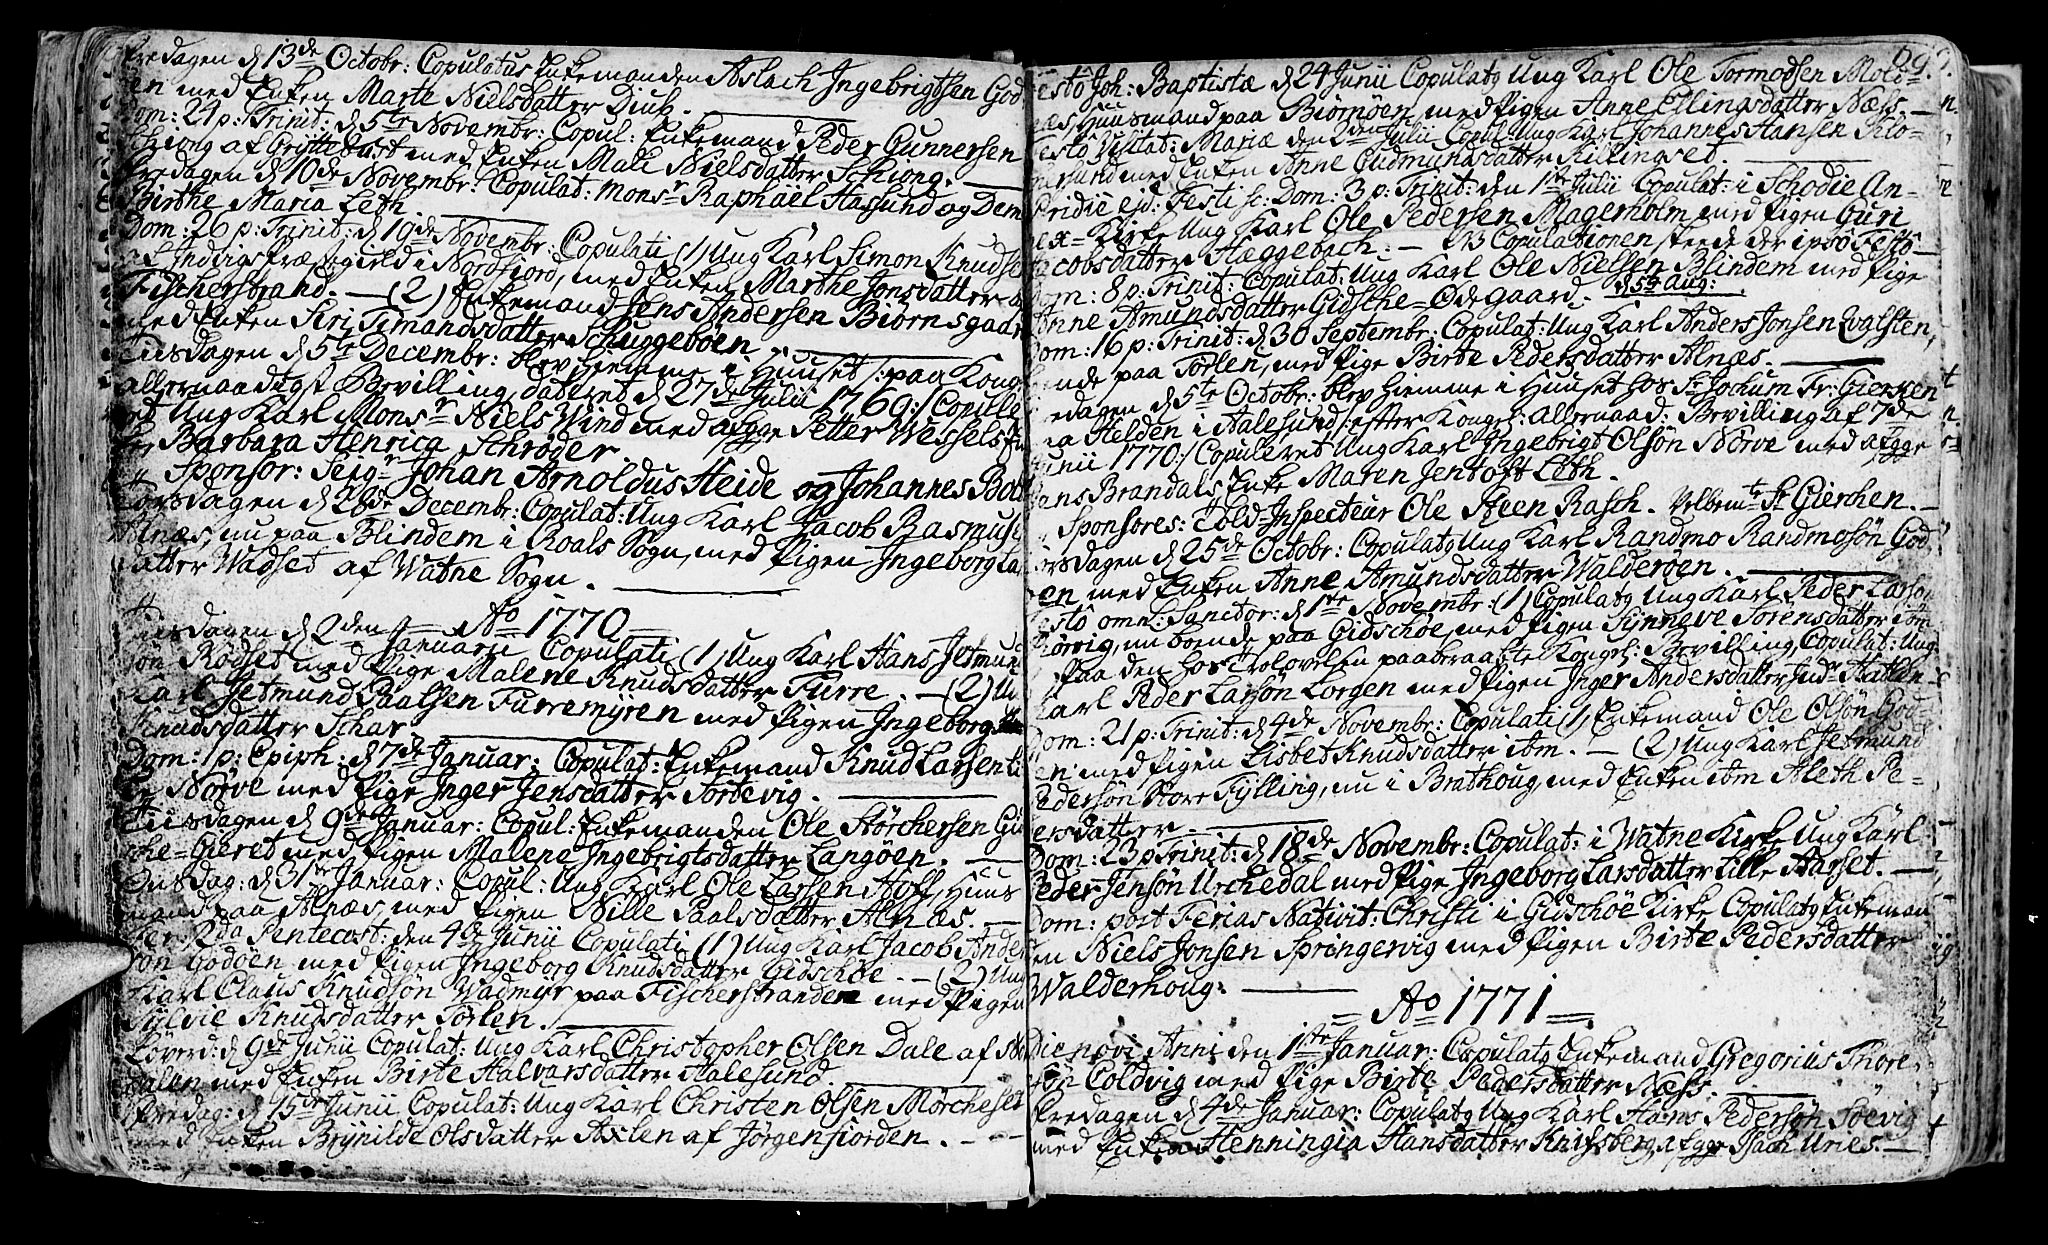 Fredagen d 13de Octobr: Copulatus Enkemanden Aslach Ingebrigtsen God
öen med Enken Marte Nielsdatter Diub.
Dom: 24 p: Trinit: d 5te Novembr: Copul: Enkemand Peder Gunnersen
Schiong af Gryttebust med Enken Mali Nielsdatter Schiong.
Fredagen d 10de Novembr: Copulat: Monsr Raphaël Haasund og Dem
Birthe Maria Leth
Dom: 26 p: Trinit: d 19de Novembr: Copulati (1) Ung Karl Simon Knudse
i Nordfiord, med Enken Marthe Jonsdatter
Fischerstrand. — (2) Enkemand Jens Andersen Biørnsgaar
med Enken Siri Timandsdatter Schuggebøen
Tiisdagen d 5te Decembr: blev hiemme i Huuset /: paa Kong:
allernaadigst Bevilling, dateret d 27de Julii 1769 :/ Copule
ret Ung Karl Monsr Niels Wind med afgge Petter Wessels En
ke Barbara Henrica Schrøder.
Sponsor: Seigr Johan Arnoldus Heide og Johannes Bo
Torsdagen d 28de Decembr: Copulat: Ung Karl Jacob Rasmus
Alnæs, nu paa Blindem i Roals Sogn, med Pigen Ingeborg La
datter Wadset af Watne Sogn.
= Ao 1770 =
Tiisdagen d 2den Januarii Copulati (1) Ung Karl Hans Jetmund
søn Rødset med Pige Malene Knudsdatter Furre. — (2) U
Karl Jetmund Paalsen Furremyren med Pigen Ingeborg
Knudsdatter Schar
Dom: 1 p: Epiph: d 7de Januar: Copulat: Enkemand Knud Larsen Li
le Nørve med Pige Inger Jensdatter Tørdevig.
Tiisdagen d 9de Januar: Copul: Enkemanden Ole Størchersen Gid
sche-Gieret med Pigen Malene Ingebrigtsdatter Langøen.
Onsdag: d 31te Januar: Copul: Ung Karl Ole Larsen Hoff, Huus
mand paa Alnæs, med Pigen Nille Paalsdatter Alnæs. —
Fer: 2da Pentecost: den 4de Junii Copulati (1) Ung Karl Jacob Ander
søn Godøen med Pigen Ingeborg Knudsdatter Gidschøe. — (2) Ung
Karl Claus Knudsøn Wadmyr paa Fischerstranden med Pigen
Sylvie Knudsdatter Tørlen.
Løverd: d 9de Junii Copulat: Ung Karl Christopher Olsen Dale af No
dalen med Enken Birte Halvarsdatter Aalesund.
Fredag: d 15de Junii Copulat: Ung Karl Christen Olsen Mørcheset
med Enken Brynilde Olsdatter Axlen af Jørgenfiorden.
69.
Festo Joh: Baptistæ d 24 Junii Copulatg Ung Karl Ole Tormodsen Molv
næs, Huusmand paa Biørnøen, med Pigen Anne Ellingsdatter Næss. —
Festo Visitat: Mariæ den 2den Julii Copul: Ung Karl Johannes Hansen Sto-
med Enken Anne Gudmundsdatter Killingset.
Pridie ejd: Festi sc: Dom: 3 p: Trinit: den 1te Julii Copulat: i Schodie An-
nex-Kirke Ung Karl Ole Pedersen Magerholm med Pigen Guri
Jacobsdatter Hæggebach. — NB Copulationen skeede der ipsô Festô
Dom: 8 p: Trinit: Copulat: Ung Karl Ole Nielsen Blindem med Pige
Anne Amundsdatter Gidsche-Ødegaard. d 5te Aug:
Dom: 16 p: Trinit: d 30 Septembr: Copulat: Ung Karl Anders Jonsen Walsten,
ende paa Tørlen, med Pige Birte Pedersdatter Alnæs.
Fredagen d 5te Octobr: blev hiemme i Huuset hos Sr Jochum Fr: Giersen
paa Helden i Aalesund /: efter Kongel: allernaad: Bevilling af 7de
Junii 1770 :/ Copuleret Ung Karl Ingebrigt Olsøn Nørve med afgge
Hans Brandals Enke Maren Jentoft Leth.
Sponsores: Told-Inspecteur Ole Steen Rasch. Velbemte Sr Gierchen. —
Torsdagen d 25de Octobr: Copulatg Ung Karl Randmo Randmosøn God
øen med Enken Anne Amundsdatter Walderøen.
Festô omn: Sanctor: d 1te Novembr: (1) Copulatg Ung Karl Peder Larsøn
nu boende paa Gidschøe, med Pigen Synneve Sørensdatter ibm
Paa den hos Trolovelsen paaberaabte Kongel: Bevilling, Copulat: Ung
Karl Peder Larsøn Lorgen med Pigen Inger Andersdatter
Dom: 21 p: Trinit: d 4de Novembr: Copulati (1) Enkemand Ole Olsøn God
øen med Pigen Lisbet Knudsdatter ibm. — (2) Ung Karl Jetmund
Pedersøn Store Fylling, nu i Brathoug, med Enken ibm Aleth Pe-
dersdatter.
Dom: 23 p Trinit: d 18de Novembr: Copulat: i Watne Kirke Ung Karl
Peder Jensøn Urchedal med Pige Ingeborg Larsdatter Lille Aarset. —
Dom: post Ferias Nativit: Christi i Gidschöe Kirke Copulatg Enkeman
den Niels Jonsen Springervig med Pigen Birte Pedersdatter
Walderhoug:
= Ao 1771 =
Die novi Anni den 1te Januar: Copulatg Enkemand Gregorius Thore
søn Coldvig med Pige Birte Pedersdatter Næss.
Fredagen d 4de Januar: Copulatg Ung Karl Hans Pedersøn Søevig
med Enken Henningia Hansdatter Knifsberg, afgge Isach Uries. —